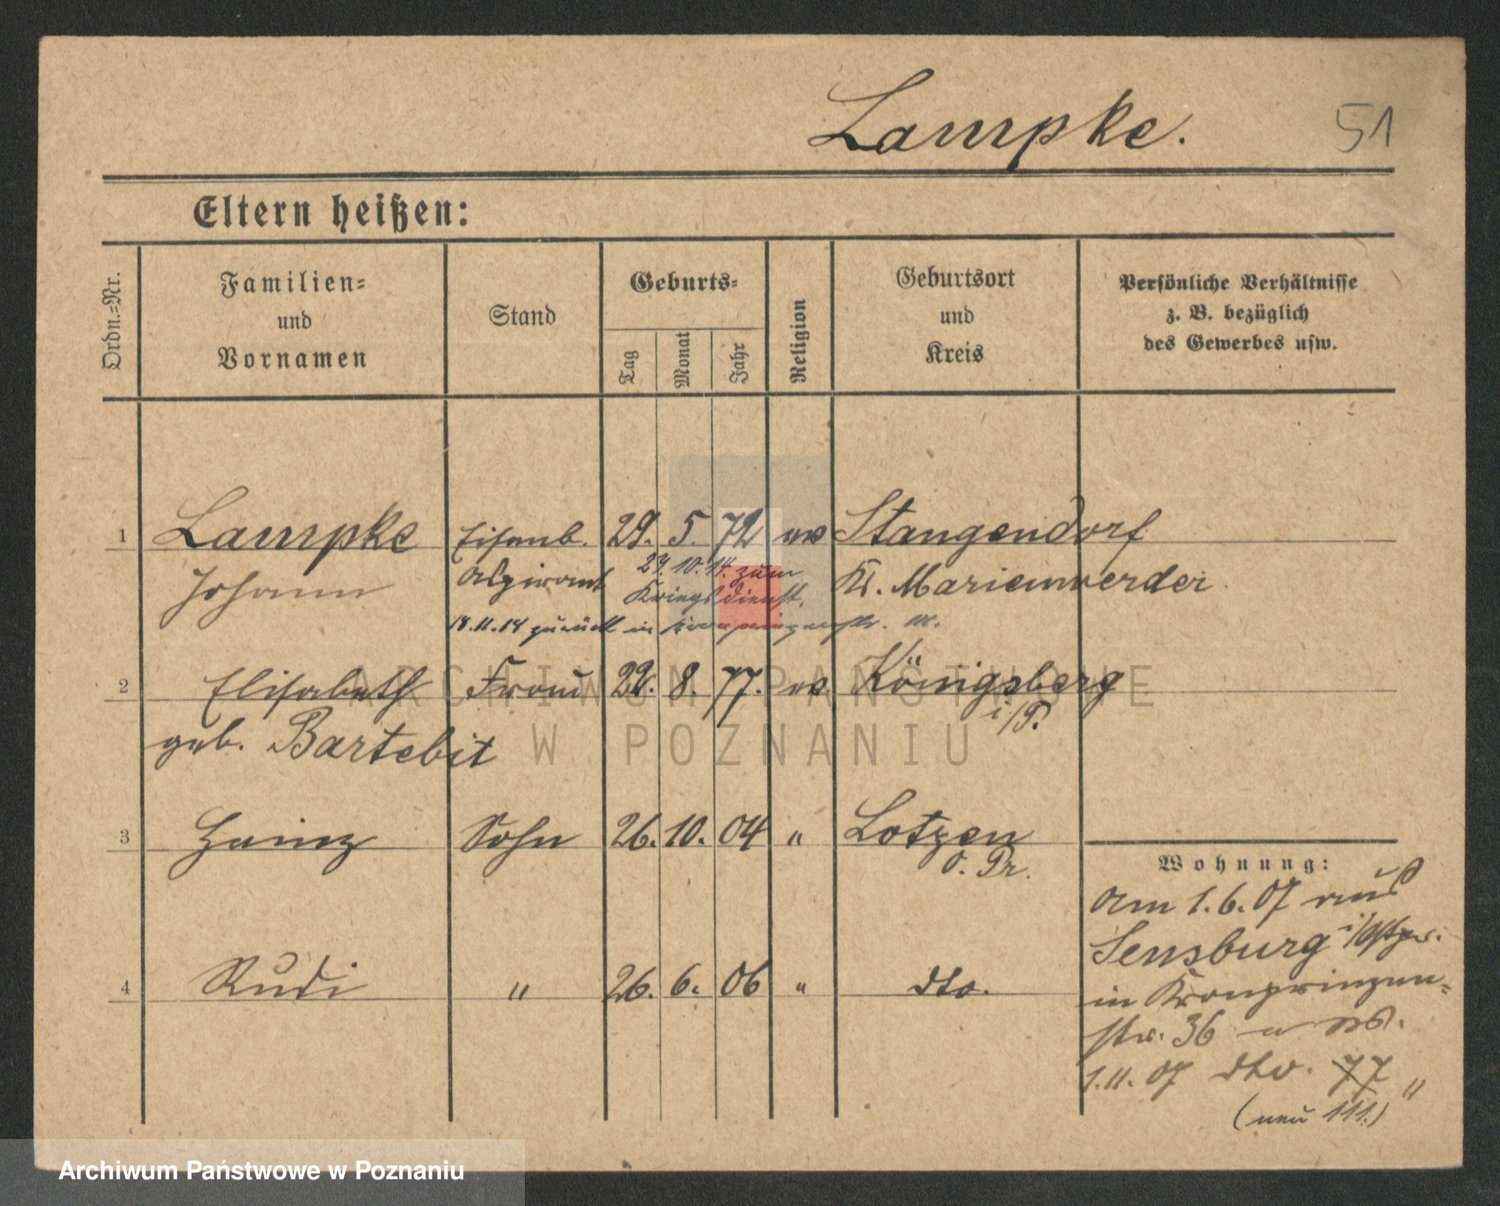 Lampke. 51
Eltern heißen:
Ordn.-Nr.
Familien-
und
Vornamen
Stand
Geburts-
Tag
Monat
Jahr
Religion
Geburtsort
und
Kreis
Persönliche Verhältnisse
z. B. bezüglich
des Gewerbes usw.
1 Lampke Eisenb. 29. 5. 72 ev Stangendorf
Johann 24.10.14. zum Kr. Marienwerder
Kriegsdienst,
18.11.14 zurück in Kronprinzenstr.
2 Elisabeth Frau 8. 77. ev. Königsberg
i/P.
geb. Bartebit
3 Heinz Sohn 26. 10. 04 " Lotzen
O. Pr.
4 Rudi " 26. 6. 06 " dto.
Wohnung:
Am 1.6.07 aus
Sensburg i/Ostpr.
in Kronprinzen-
str. 36
1.11.07 dto. 77 "
(neu 111.)
ARCHIWUM PAŃSTWOWE
W POZNANIU
Archiwum Państwowe w Poznaniu